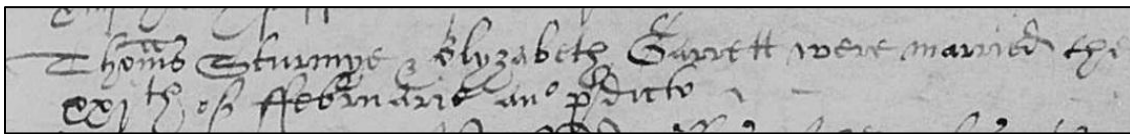 Thom̃s Sturmye & Elyzabeth Garrett were married the
xxjth of ffebruarie ano p̱dicto